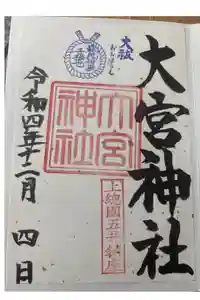 大祓
大宮神社
大宮
神社
上總國五井鎮座
令和四年十二月 四日